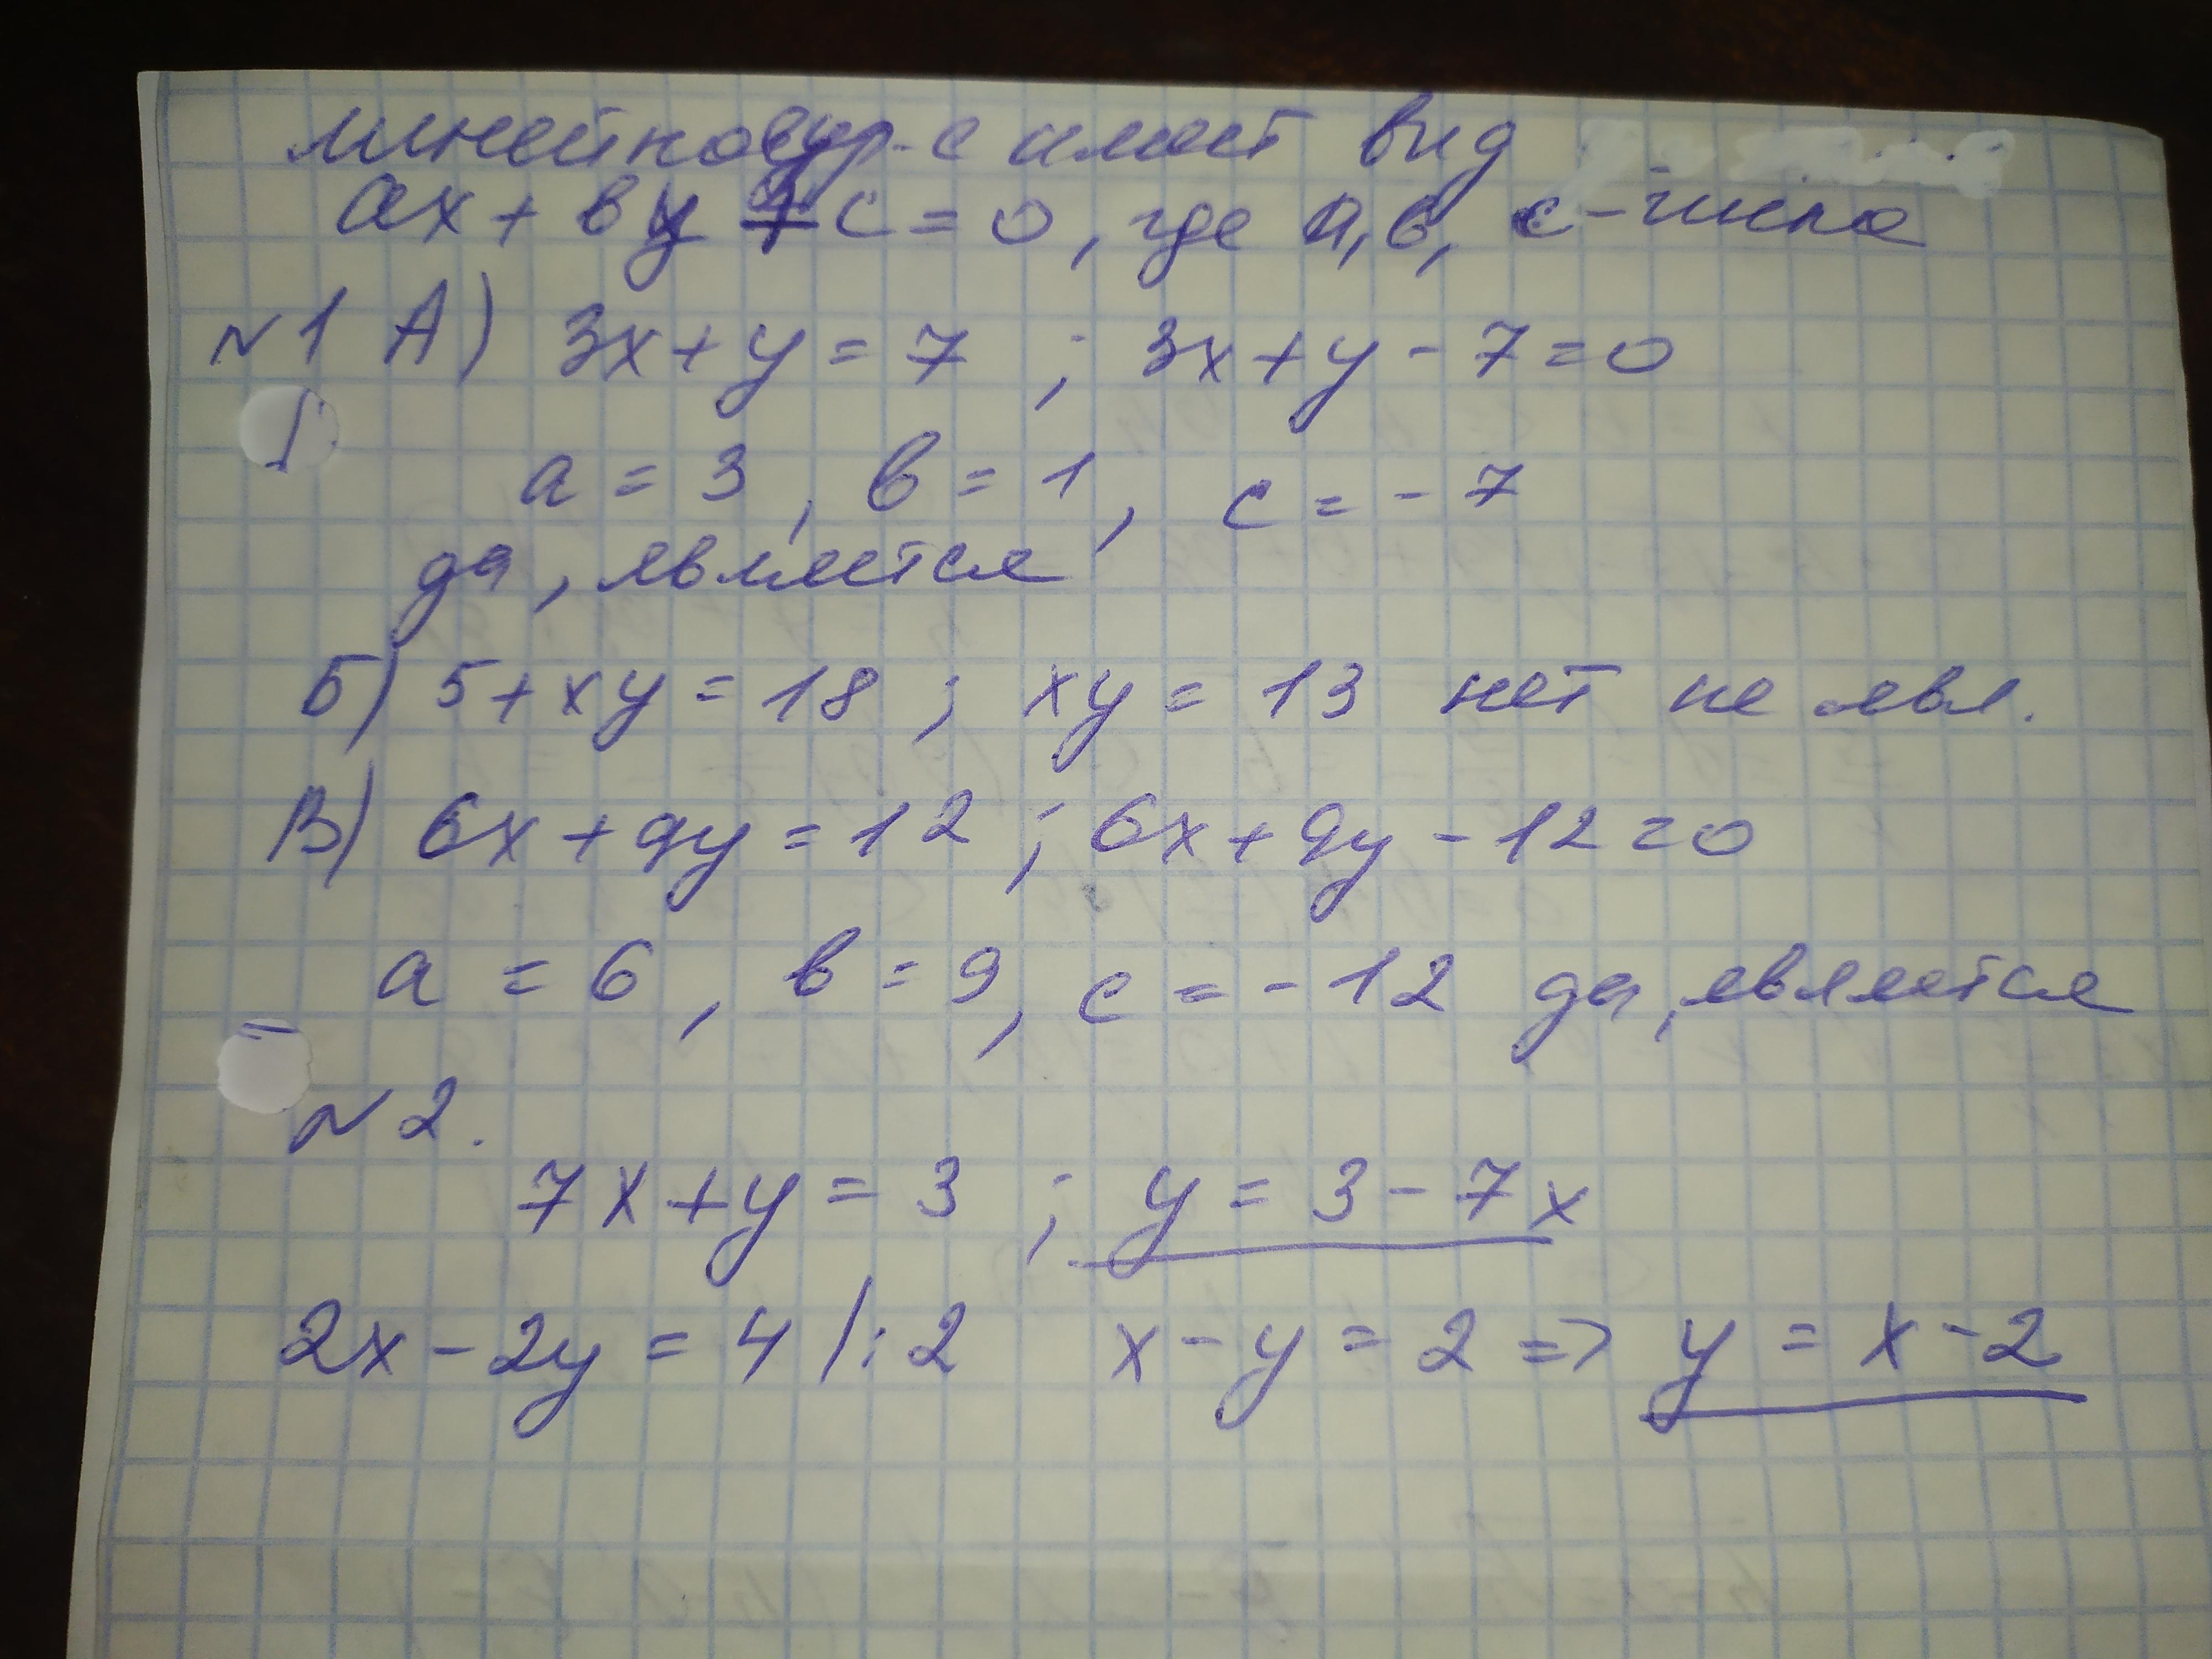 линейное ур-е имеет вид
ax + by + c = 0, где a, b, c - числа
№1 А) 3x + y = 7 ; 3x + y - 7 = 0
a = 3, b = 1, c = - 7
да, является
Б) 5 + xy = 18 ; xy = 13 нет не явл.
В) 6x + 9y = 12 ; 6x + 9y - 12 = 0
a = 6, b = 9, c = - 12 да, является
№2.
7x + y = 3 ; y = 3 - 7x
2x - 2y = 4 /:2 x - y = 2 => y = x - 2